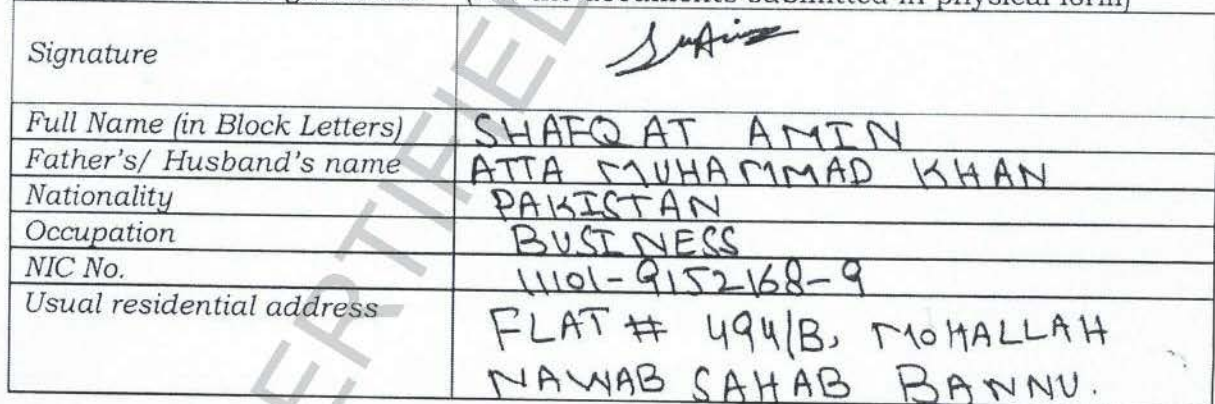 (documents submitted in physical form)
Signature
Full Name (in Block Letters) SHAFQAT AMIN
Father's/ Husband's name ATTA MUHAMMAD KHAN
Nationality PAKISTAN
Occupation BUSINESS
NIC No. 11101-9152168-9
Usual residential address FLAT # 494/B, MOHALLAH
NAWAB SAHAB BANNU.